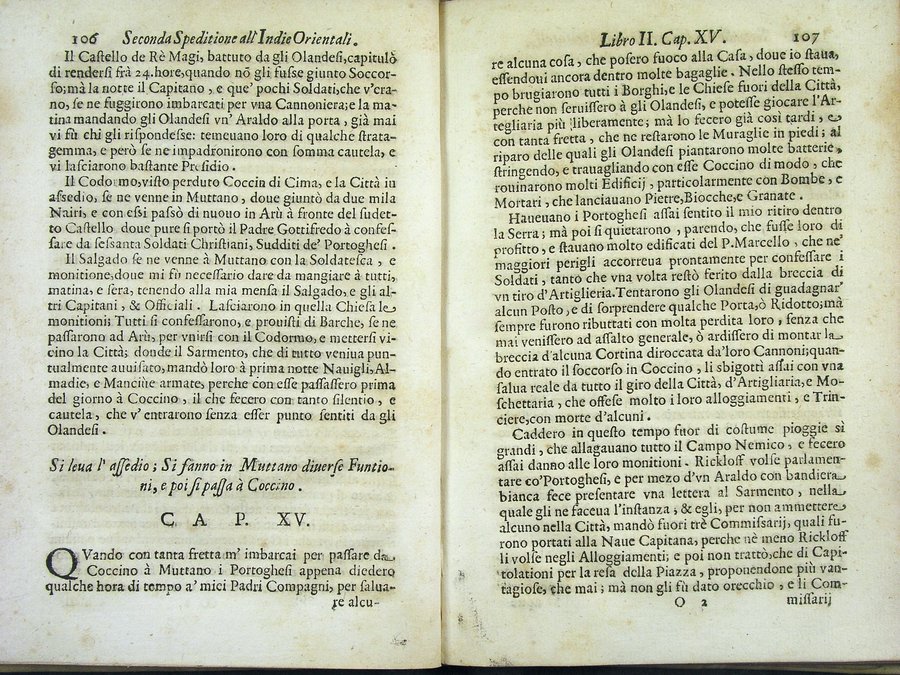 106 Seconda Speditione all' Indie Orientali.
Il Castello de Rè Magi, battuto da gli Olandesi, capitulò
di rendersi frà 24. hore, quando nō gli fusse giunto Soccor-
so; mà la notte il Capitano, e que' pochi Soldati, che v'cra-
no, se ne fuggirono imbarcati per vna Cannoniera; e la ma-
tina mandando gli Olandesi vn' Araldo alla porta, già mai
vi fù chi gli rispondesse: temeuano loro di qualche strata-
gemma, e però se ne impadronirono con somma cautela, e
vi lasciarono bastante Presidio.
Il Codormo, visto perduto Coccin di Cima, e la Città in
assedio, se ne venne in Muttano, doue giuntò da due mila
Nairi, e con essi passò di nuouo in Arù à fronte del sudet-
to Castello doue pure si portò il Padre Gottifredo à confes-
sare da sessanta Soldati Christiani, Sudditi de' Portoghesi.
Il Salgado se ne venne à Muttano con la Soldatesca, e
monitione, doue mi fù necessario dare da mangiare à tutti,
matina, e sera, tenendo alla mia mensa il Salgado, e gli al-
tri Capitani, & Officiali. Lasciarono in quella Chiesa le
monitioni; Tutti si confessarono, e prouisti di Barche, se ne
passarono ad Arù, per vnirsi con il Codormo, e mettersi vi-
cino la Città; donde il Sarmento, che di tutto veniua pun-
tualmente auuisato, mandò loro à prima notte Nauigli, Al-
madie, e Manciùe armate, perche con esse passassero prima
del giorno à Coccino, il che fecero con tanto silentio, e
cautela, che v' entrarono senza esser punto sentiti da gli
Olandesi.
Si leua l' assedio; Si fanno in Muttano diuerse Funtio-
ni, e poi si passa à Coccino.
C A P. XV.
QVando con tanta fretta m' imbarcai per passare da
Coccino à Muttano i Portoghesi appena diedero
qualche hora di tempo a' mici Padri Compagni, per salua-
re alcu-
Libro II. Cap. XV. 107
re alcuna cosa, che posero fuoco alla Casa, doue io staua,
essendoui ancora dentro molte bagaglie. Nello stesso tem-
po brugiarono tutti i Borghi, e le Chiese fuori della Città,
perche non seruissero à gli Olandesi, e potesse giocare l'Ar-
tegliaria più liberamente; mà lo fecero già così tardi, e
con tanta fretta, che ne restarono le Muraglie in piedi; al
riparo delle quali gli Olandesi piantarono molte batterie,
stringendo, e trauagliando con esse Coccino di modo, che
rouinarono molti Edificij, particolarmente con Bombe, e
Mortari, che lanciauano Pietre, Biocche, e Granate.
Haueuano i Portoghesi assai sentito il mio ritiro dentro
la Serra; mà poi si quietarono, parendo, che fusse loro di
profitto, e stauano molto edificati del P. Marcello, che ne'
maggiori perigli accorreua prontamente per confessare i
Soldati, tanto che vna volta restò ferito dalla breccia di
vn tiro d'Artiglieria. Tentarono gli Olandesi di guadagnar'
alcun Posto, e di sorprendere qualche Porta, ò Ridotto; mà
sempre furono ributtati con molta perdita loro, senza che
mai venissero ad assalto generale, ò ardissero di montar la
breccia d'alcuna Cortina diroccata da' loro Cannoni; quan-
do entrato il soccorso in Coccino, li sbigottì assai con vna
salua reale da tutto il giro della Città, d'Artigliaria, e Mo-
schettaria, che offese molto i loro alloggiamenti, e Trin-
ciere, con morte d'alcuni.
Caddero in questo tempo fuor di costume pioggie sì
grandi, che allagauano tutto il Campo Nemico, e fecero
assai danno alle loro monitioni. Rickloff volse parlamen-
tare co' Portoghesi, e per mezo d'vn Araldo con bandiera
bianca fece presentare vna lettera al Sarmento, nella
quale gli ne faceua l'instanza, & egli, per non ammettere
alcuno nella Città, mandò fuori trè Commissarij, quali fu-
rono portati alla Naue Capitana, perche nè meno Rickloff
li volse negli Alloggiamenti; e poi non trattò, che di Capi-
tolationi per la resa della Piazza, proponendone più van-
tagiose, che mai; mà non gli fù dato orecchio, e li Com-
O 2 missarij